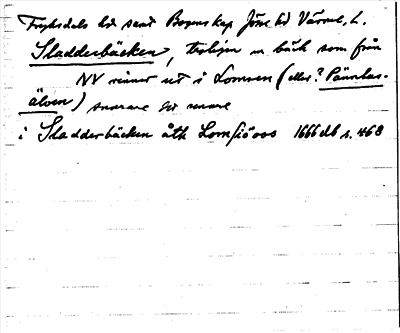 Fryksdals hd samt Bogens kap Jöns hd Värml. l.
Sladderbäcken, troligen en bäck som från
NV rinner ut i Lomsen (eller? Pännlas-
älven) snarare det senare
i Sladderbäcken åth Lomsiöoos 1666 db s. 468